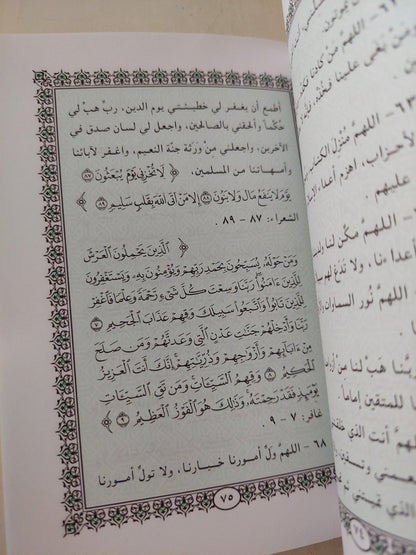 أطمع أن يغفر لي خطيئتي يوم الدين، ربّ هبْ لي
حُكماً وألحقني بالصالحين، واجعل لي لسان صدق في
الآخرين، واجعلني مِنْ ورثة جنّة النعيم، واغفر لآبائنا
وأمهاتنا من المسلمين. ﴿ لَا تُخْزِنِي يَوْمَ يُبْعَثُونَ ٨٧
يَوْمَ لَا يَنفَعُ مَالٌ وَلَا بَنُونَ ٨٨ إِلَّا مَنْ أَتَى ٱللَّهَ بِقَلْبٍ سَلِيمٍ ٨٩ ﴾
الشعراء: ٨٧ - ٨٩ .
﴿ ٱلَّذِينَ يَحْمِلُونَ ٱلْعَرْشَ
وَمَنْ حَوْلَهُۥ يُسَبِّحُونَ بِحَمْدِ رَبِّهِمْ وَيُؤْمِنُونَ بِهِۦ وَيَسْتَغْفِرُونَ
لِلَّذِينَ ءَامَنُوا۟ رَبَّنَا وَسِعْتَ كُلَّ شَىْءٍ رَّحْمَةً وَعِلْمًا فَٱغْفِرْ
لِلَّذِينَ تَابُوا۟ وَٱتَّبَعُوا۟ سَبِيلَكَ وَقِهِمْ عَذَابَ ٱلْجَحِيمِ ٧
رَبَّنَا وَأَدْخِلْهُمْ جَنَّٰتِ عَدْنٍ ٱلَّتِى وَعَدتَّهُمْ وَمَن صَلَحَ
مِنْ ءَابَآئِهِمْ وَأَزْوَٰجِهِمْ وَذُرِّيَّٰتِهِمْ إِنَّكَ أَنتَ ٱلْعَزِيزُ
ٱلْحَكِيمُ ٨ وَقِهِمُ ٱلسَّيِّـَٔاتِ وَمَن تَقِ ٱلسَّيِّـَٔاتِ
يَوْمَئِذٍ فَقَدْ رَحِمْتَهُۥ وَذَٰلِكَ هُوَ ٱلْفَوْزُ ٱلْعَظِيمُ ٩ ﴾
غافر: ٧ - ٩ .
٦٨ - اللهمّ ولِّ أمورنا خيارنا، ولا تولِّ أمورنا
٧٥
- اللهمّ مَنْ كادنا
- اللهمّ مُنْزِل الكتاب
الأحزاب، اهزم أعداء
عليهم .
- اللهمّ مكّن لنا
أعداءنا، ولا تدَعْ لهم
اللهمّ نُور السماوات
ربّنا هَب لنا مِنْ
للمتقين إماماً.
اللهمّ أنت الذي
٧٤